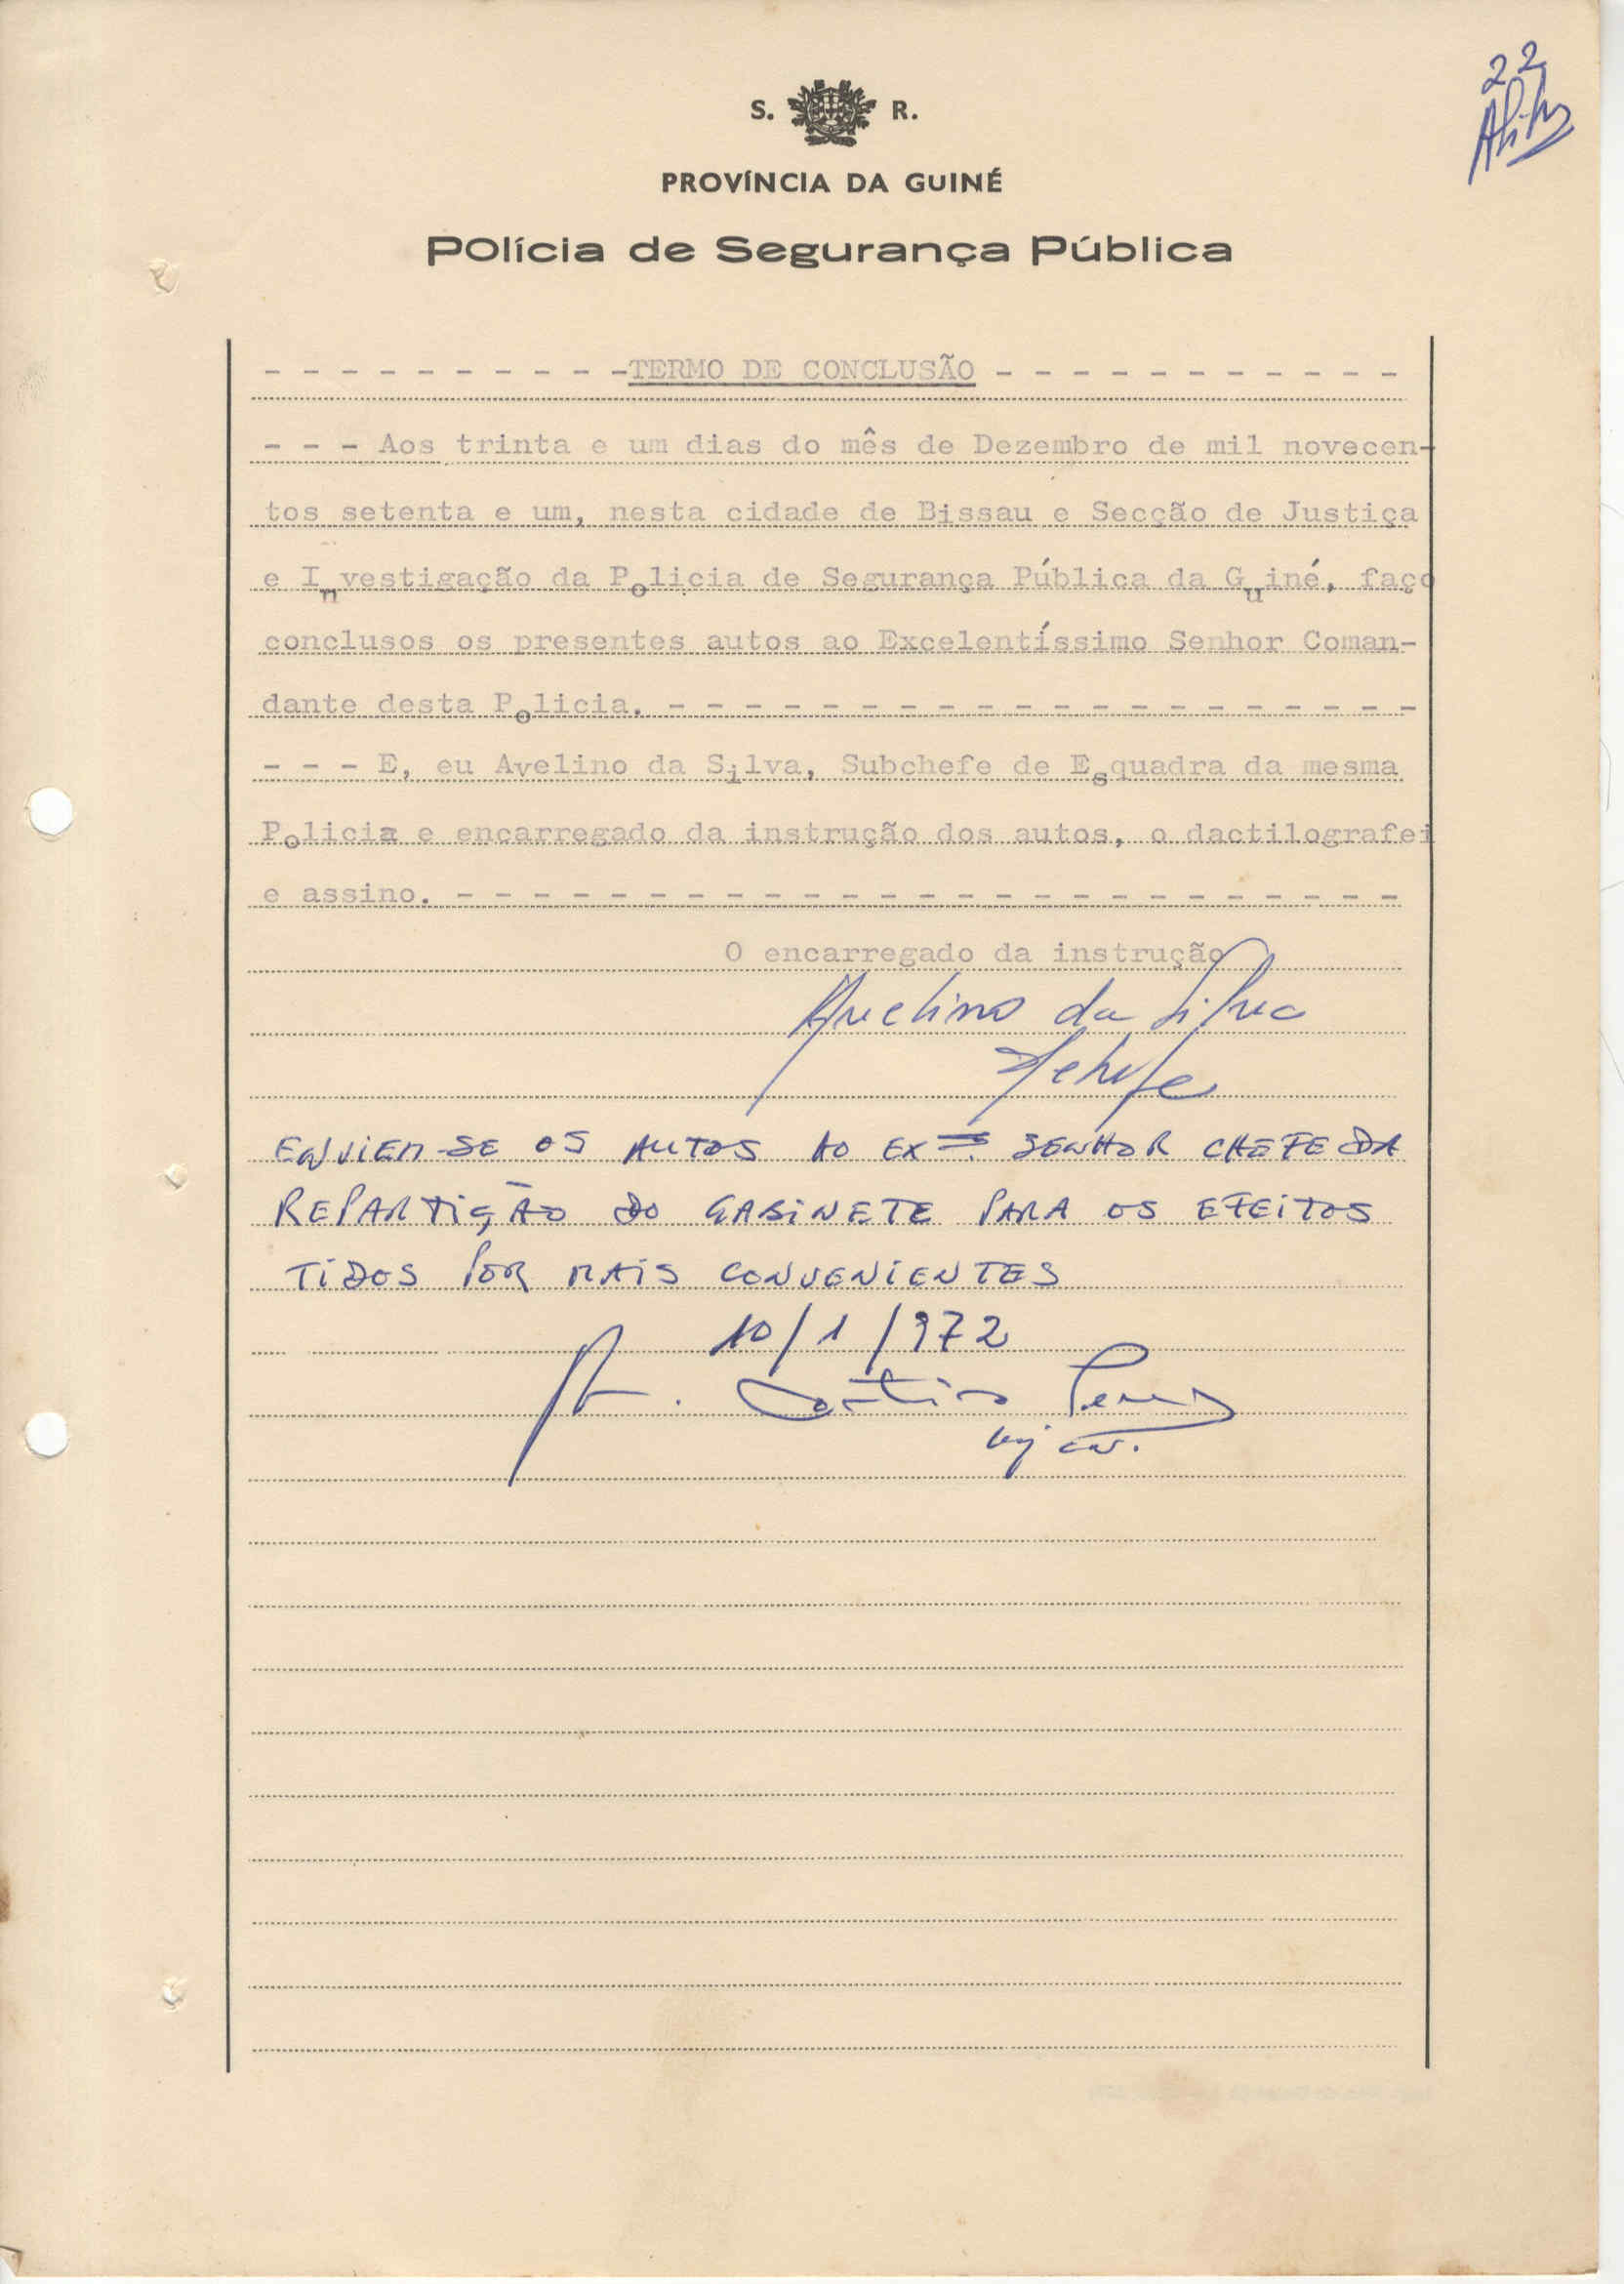 22
S. R.
PROVÍNCIA DA GUINÉ
Polícia de Segurança Pública
- - - - - - - - - -TERMO DE CONCLUSÃO - - - - - - - - - - -
- - - Aos trinta e um dias do mês de Dezembro de mil novecen-
tos setenta e um, nesta cidade de Bissau e Secção de Justiça
e Investigação da Policia de Segurança Pública da Guiné, faço
conclusos os presentes autos ao Excelentíssimo Senhor Coman-
dante desta Policia. - - - - - - - - - - - - - - - - - - - -
- - - E, eu Avelino da Silva, Subchefe de Esquadra da mesma
Policia e encarregado da instrução dos autos, o dactilografei
e assino. - - - - - - - - - - - - - - - - - - - - - - - - -
O encarregado da instrução
Avelino da Silva
ENVIEM-SE OS AUTOS AO EXmo. SENHOR CHEFE DA
REPARTIÇÃO DO GABINETE PARA OS EFEITOS
TIDOS POR MAIS CONVENIENTES
10/1/972